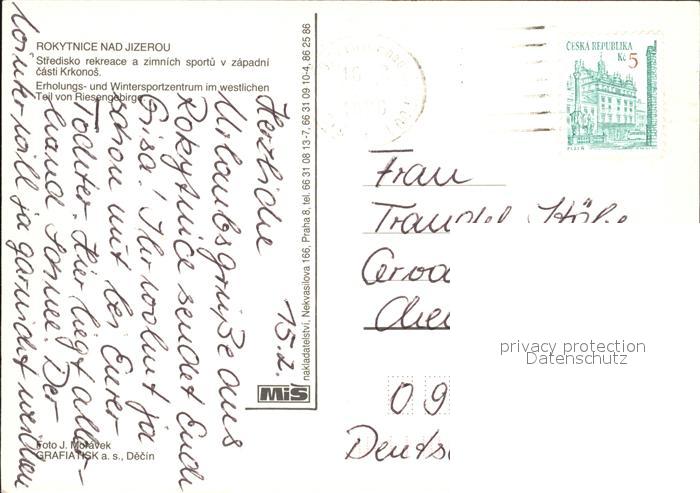 ROKYTNICE NAD JIZEROU
Středisko rekreace a zimních sportů v západní
části Krkonoš.
Erholungs- und Wintersportzentrum im westlichen
Teil von Riesengebirge.
15.2.
Herzliche
Urlaubsgrüße aus
Rokytnice sendet Euch
Gisa! Ihr wohnt ja
schon mit bei Eurer
Tochter. Hier liegt aller-
hand Schnee. Der
Winter will ja garnicht weichen
Foto J. Morávek
GRAFIATISK a. s., Děčín
nakladatelství, Nekvasilova 166, Praha 8, tel. 66 31 08 13-7, 66 31 09 10-4, 86 25 86
MiS
ČESKÁ REPUBLIKA
Kč 5
PLZEŇ
Frau
09
privacy protection
Datenschutz